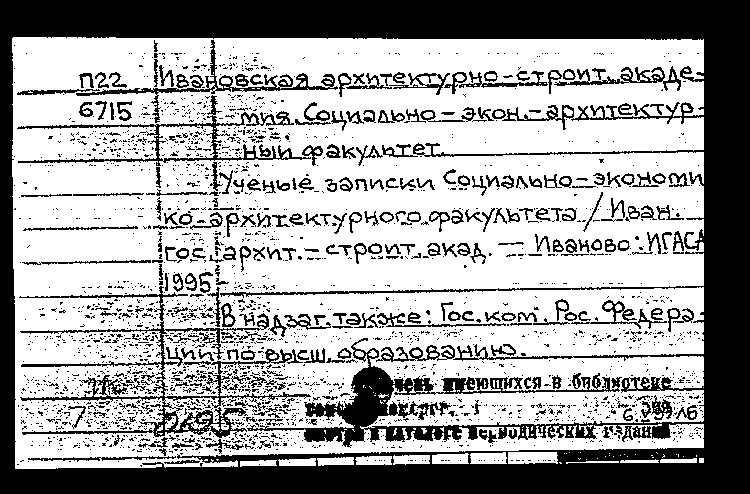 П22 Ивановская архитектурно-строит. акаде-
6715 мия. Социально-экон.-архитектур-
ный факультет.
Ученые записки Социально-экономи
ко-архитектурного факультета / Иван.
гос. архит.-строит. акад. — Иваново: ИГАСА
1995-
В надзаг. также: Гос. ком. Рос. Федера-
ции по высш. образованию.
имеющихся в библиотеке
7
смотри в каталоге периодических изданий